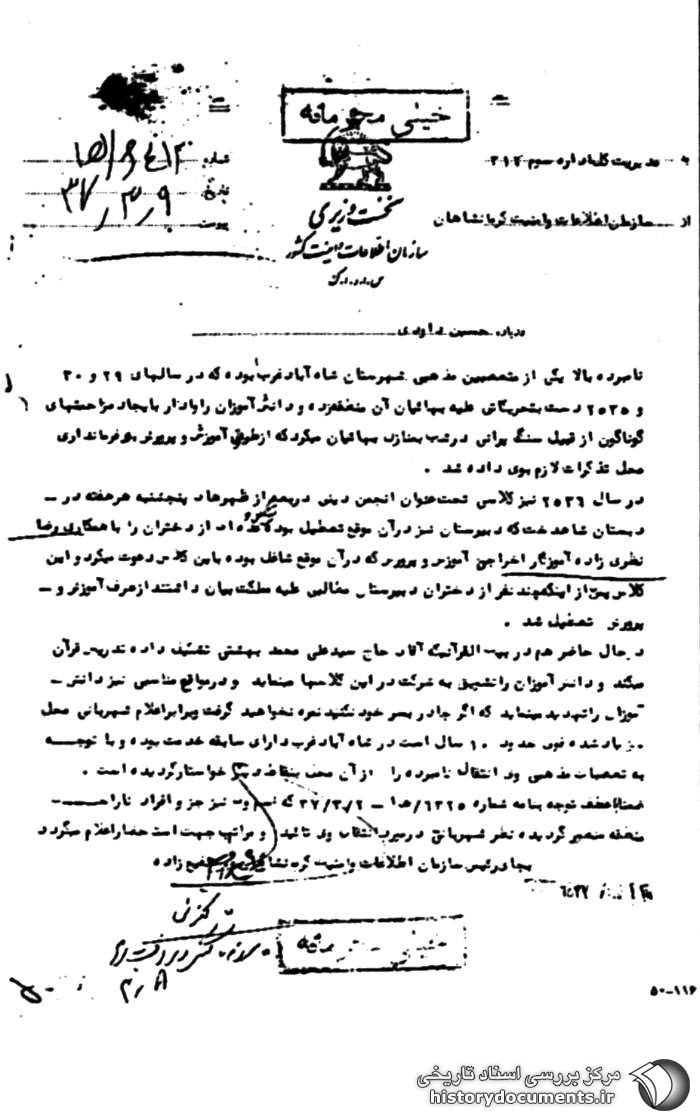 خیلی محرمانه
به مدیریت کل اداره سوم ۳۱۲
از سازمان اطلاعات و امنیت کرمانشاهان
شماره
تاریخ ۳۷٫۳٫۹
پیوست
نخست وزیری
سازمان اطلاعات و امنیت کشور
س.ا.و.ا.ک
درباره حسین داودی
نامبرده بالا یکی از متعصبین مذهبی شهرستان شاه آباد غرب بوده که در سالهای ۲۹ و ۳۰
و ۲۵۳۵ دست بتحریکاتی علیه بهائیان آن منطقه زده و دانش آموزان را وادار بایجاد مزاحمتهای
گوناگون از قبیل سنگ پرانی درشب بمنازل بهائیان میکرد که از طریق آموزش و پرورش و فرمانداری
محل تذکرات لازم بوی داده شد .
در سال ۲۵۳۶ نیز کلاسی تحت عنوان انجمن دینی دربعد از ظهرهای پنجشنبه هر هفته در –
دبستان شاهدخت که دبیرستان نیز در آن موقع تعطیل بود تشکیل و تعداد از دختران را با همکاری رضا
نظری زاده آموزگار اخراجی آموزش و پرورش که در آن موقع شاغل بوده باین کلاس دعوت میکرد و این
کلاس پس از اینکه چند نفر از دختران دبیرستان مطالبی علیه مملکت بیان داشتند از طرف آموزش و –
پرورش تعطیل شد .
درحال حاضر هم در بیت القرآنیکه آقای حاج سید علی محمد بهشتی تشکیل داده تدریس قرآن
میکند و دانش آموزان را تشویق به شرکت در این کلاسها مینماید و در مواقع مناسبی نیز دانش –
آموزان را تهدید مینماید که اگر چادر بسر خود نکنید نمره نخواهید گرفت وبرابر اعلام شهربانی محل
یاد شده فوق حدود ۱۰ سال است در شاه آباد غرب دارای سابقه خدمت بوده و با توجه
به تعصبات مذهبی وی انتقال نامبرده را از آن محل بنقاط دیگر خواستار گردیده است .
ضمناً عطف توجه بنامه شماره ۶۳۲۵/ ه‍ا – ۳۷/۳/۲ که نیز جزو افراد ناراحت
منطقه منعکس گردیده نظر شهربانی در مورد انتقال وی تائید و مراتب جهت استحضار اعلام میگردد
بجای رئیس سازمان اطلاعات و امنیت کرمانشاهان
خیلی محرمانه
۵۰-۱۱۶
مرکز بررسی اسناد تاریخی
historydocuments.ir